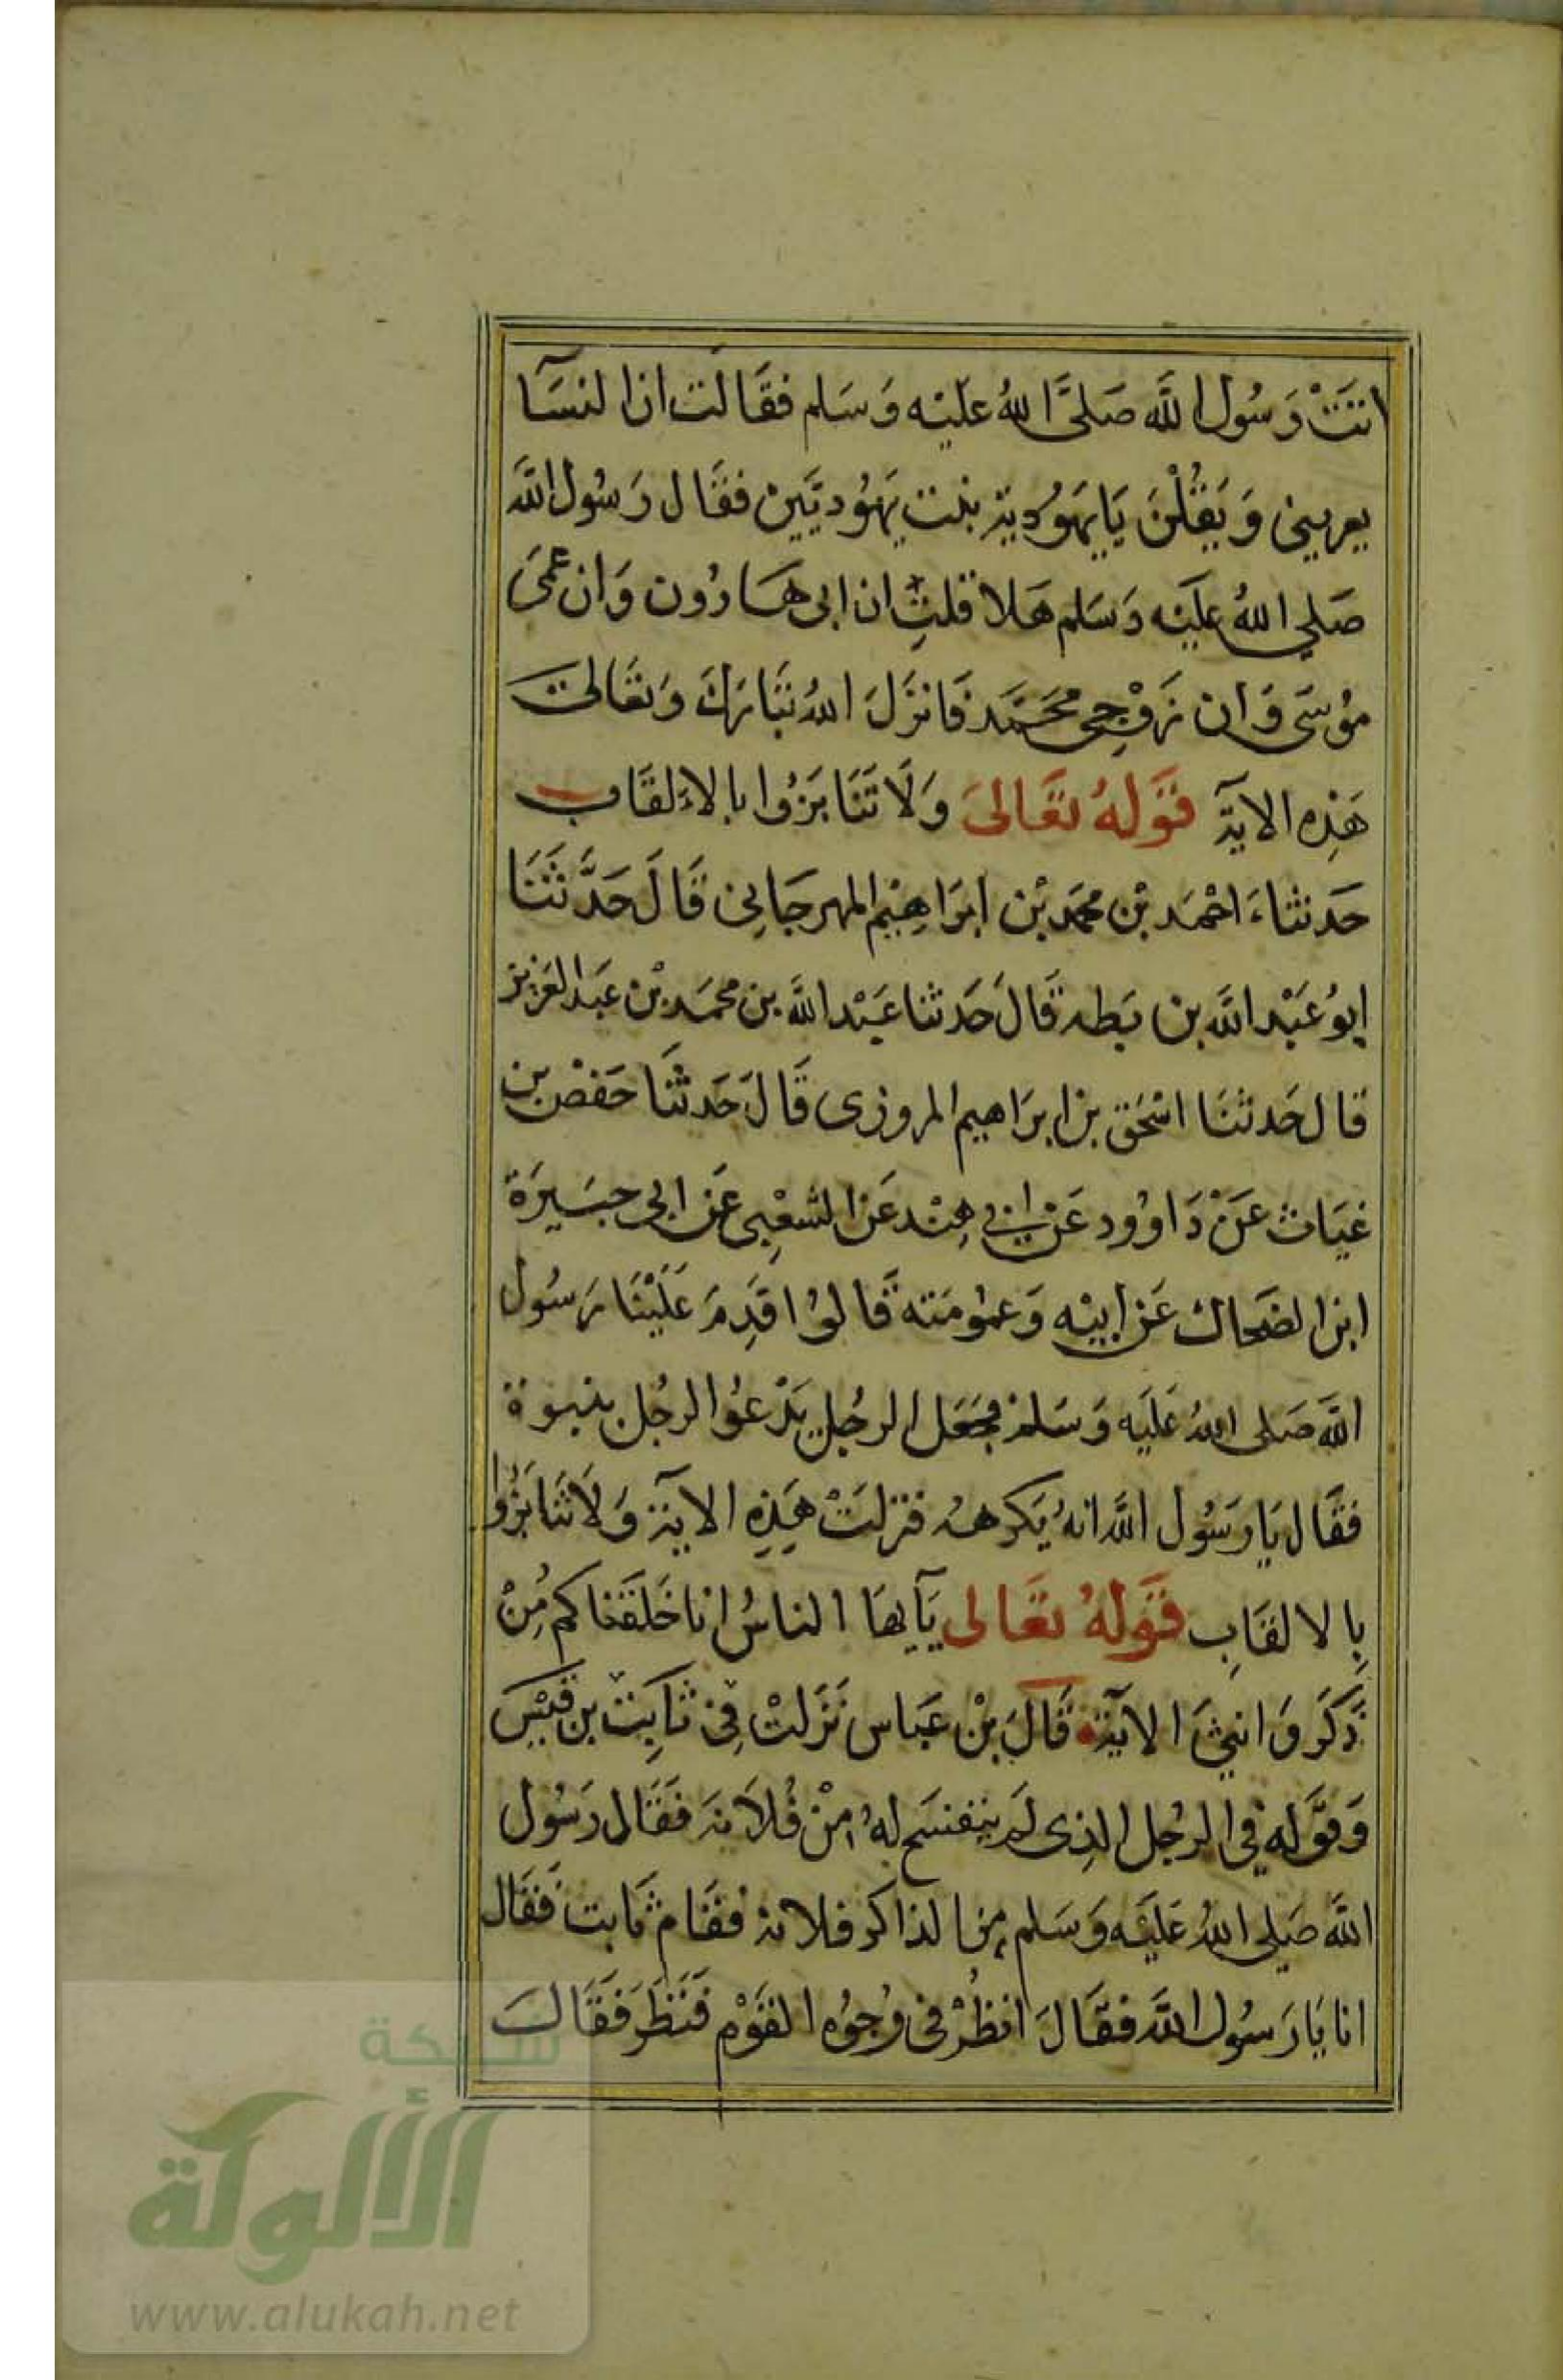 اتَتْ رَسُول اللَّه صَلىَّ اللهُ عليْه وَسَلم فقَالَت ان النسَآ
يعرينى وَيَقُلْنَ يَايَهوُدية بنت يَهُوديَّين فقَال رَسُول اللَّه
صَلي اللهُ عليَه وَسَلم هَلا قلتِ ان ابى هَارُون وَان عمىَ
موُسَى وَان زَوْجِى محَمَّد فَانزَلَ اللهُ تبَارَكَ وَتعَالىَ
هَذِه الايَة قَولهُ تعَالىَ وَلَا تَنَابَزُوا بالالقَاب
حَدثناَ احْمَد بْن محمَد بْن ابرَاهِيْم المهرجَانِى قَالَ حَدَّثَنَا
ابوُ عَبْد اللَّه بن بَطة قَالَ حَدثنا عَبْد اللَّه بن محمَد بْن عَبَد العَزيز
قال حَدثنَا اسْحَق بن ابرَاهيم المروزى قَالَ حَدثنَا حَفص بن
غيَاث عَنْ دَاوُود عَن ابى هِنْد عَن الشعْبِى عَن ابى جبَيرَة
ابن الضحَاك عَن ابيْه وَعمُومَته قَالوُا قَدِمَ عَلَيْنَا رَسُول
اللَّه صَلى اللهُ عَليَه وَسَلم فجَعَل الرجُل يَدْعُوا الرجُل بنبوة
فقَال يَا رَسُول اللَّه انهُ يَكرهه فنزلَتْ هَذِهِ الايَة وَلَا تنَابَزُوا
بِالالقَابِ قَولهُ تعَالى يَآيهَا الناسُ انا خَلقَناكم مِنْ
ذَكَر وَانثىَ الايَة قَالَ بْن عَباس نَزَلتْ فِى ثَابِت بن قَيْس
وَقوَله فى الرجُل الذِى لَم يتفسَح لهُ ابنْ فُلاَنة فَقَال رَسُول
اللَّه صَلى اللهُ عَليَه وَسَلم من الذاكر فلانة فقَام ثَابت فَقَال
انا يَا رَسُول اللَّه فقَالَ انظُرْ فى وُجُوُه القَوْم فَنَظَر فَقَالَ
شبكة
الألوكة
www.alukah.net